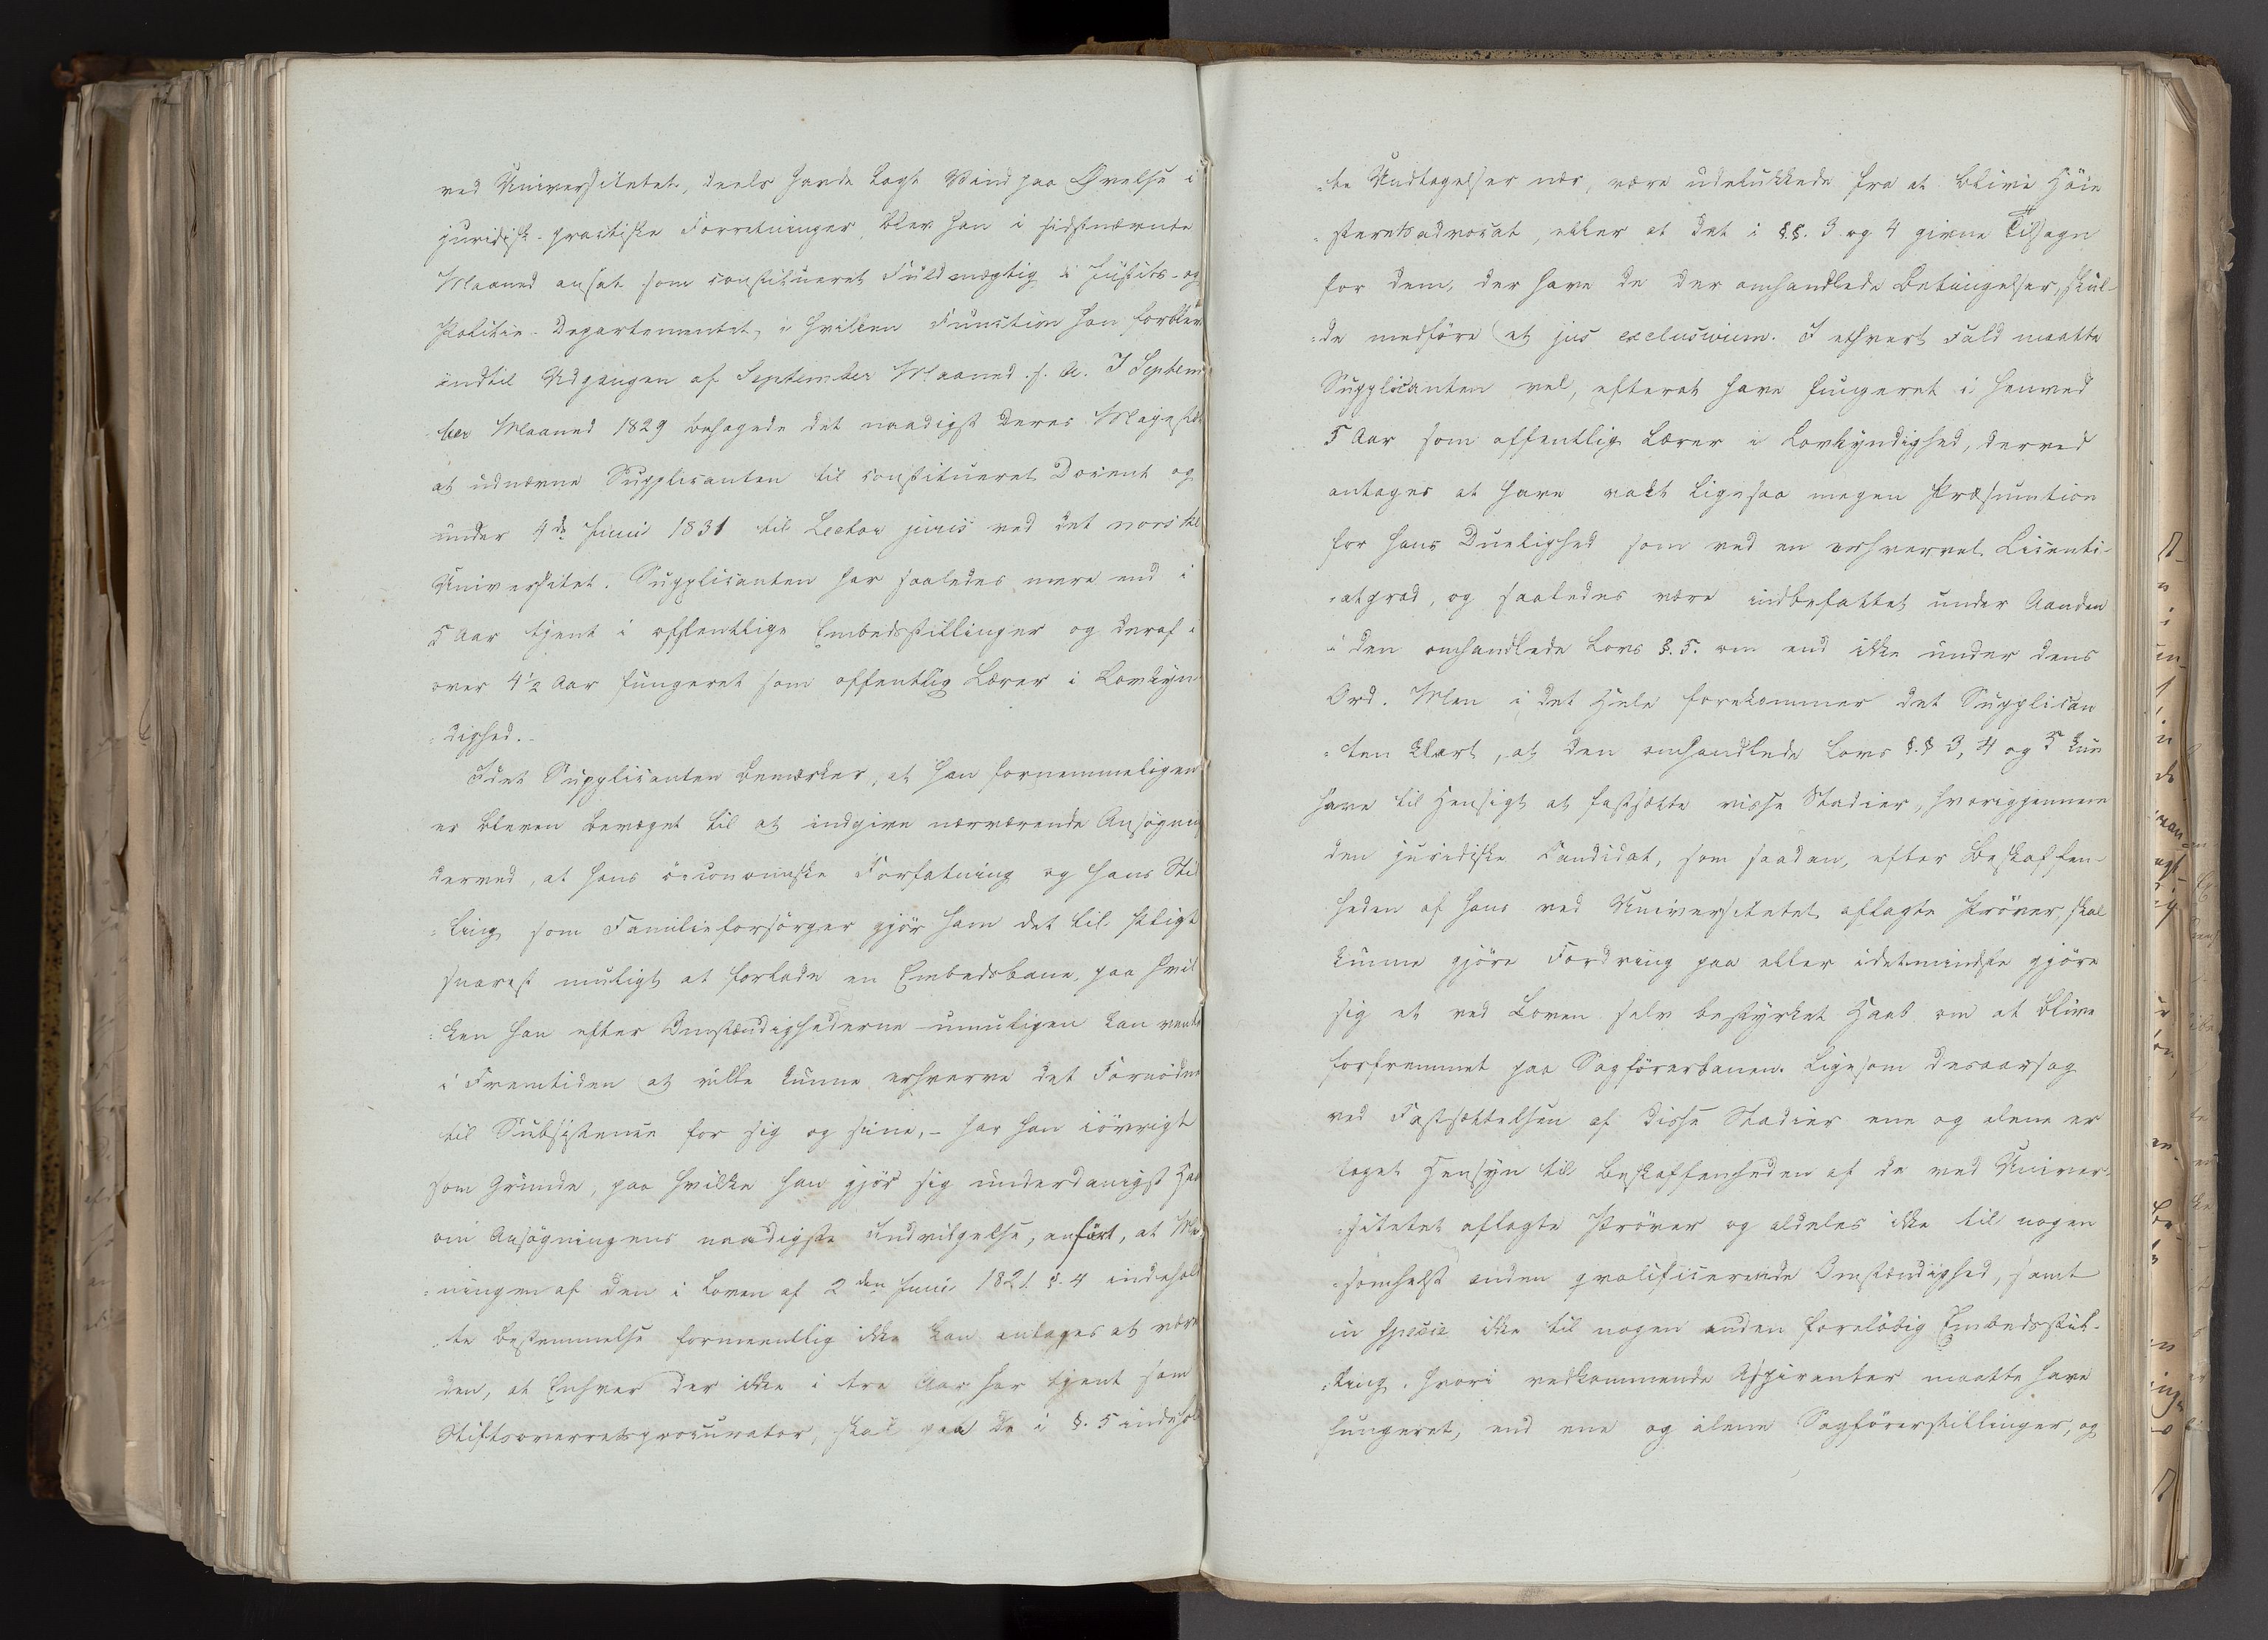 ved Universitetet, deels havde lagt Vind paa Øvelse i
juridisk-practiske Forretninger, blev han i sidstnævnte
Maaned ansat som constitueret Fuldmægtig i Justits- og
Politie-Departementet, i hvilken Function han forblev
indtil Udgangen af September Maaned s. A. I Septem
ber Maaned 1829 behagede det naadigst Deres Majestæt
at udnævne Supplicanten til constitueret Docent og
under 4de Juni 1831 til Lector juris ved det norske
Universitet. Supplicanten har saaledes mere end i
5 Aar tjent i offentlige Embedsstillinger og deraf i
over 4½ Aar fungeret som offentlig Lærer i Lovkyn
=dighed.-
Idet Supplicanten bemærker, at han fornemmeligen
er bleven bevæget til at indgive nærværende Ansögning
derved, at hans öconomiske Forfatning og hans Stil
=ling som Familieforsörger gjör ham det til Pligt
snarest muligt at forlade en Embedsbane, paa hvil
=ken han efter Omstændighederne umuligen kan vente
i Fremtiden at ville kunne erhverve det Fornödne
til Subsistence for sig og sine,- har han iövrigt
som Grunde, paa hvilke han gjör sig underdanigst Haab
om Ansögningens naadigste Indvilgelse, anfört, at Me
=ningen af den i Loven af 2den Juni 1821 §. 4 indehold
=te Bestemmelse formeentlig ikke kan antages at være
den, at Enhver der ikke i tre Aar har tjent som
Stiftsoverretsprocurator, skal paa de i §. 5 indehold
=te Undtagelser nær, være udelukkede fra at blive Höie
=steretsadvocat, eller at det i §.§. 3 og 4 givne Tilsagn
for dem, der have de der omhandlede Betingelser, skul-
=de medföre et jus exclusivum. I ethvert Fald maatte
Supplicanten vel, efterat have fungeret i henved
5 Aar som offentlig Lærer i Lovkyndighed, derved
antages at have vakt ligesaa megen Præsumtion
for hans Duelighed som ved en erhvervet Licenti-
=atgrad, og saaledes være indbefattet under Aanden
i den omhandlede Lovs §. 5. om end ikke under dens
Ord. Men i det Hele forekommer det Supplican
=ten klart, at den omhandlede Lovs §.§ 3, 4 og 5 kun
have til Hensigt at fastsætte visse Stadier, hvorigjennem
den juridiske Candidat, som saadan, efter Beskaffen-
heden af hans ved Universitetet aflagte Pröver, skal
kunne gjöre Fordring paa eller idetmindste gjöre
sig et ved Loven selv bestyrket Haab om at blive
forfremmet paa Sagförerbanen. Ligesom desaarsag
ved Fastsættelsen af disse Stadier ene og alene er
taget Hensyn til Beskaffenheden af de ved Univer-
=sitetet aflagte Pröver og aldeles ikke til nogen
=somhelst anden qvalificerende Omstændighed, samt
in specie ikke til nogen anden forelöbig Embedsstil-
=ling, hvori vedkommende Aspiranter maatte have
fungeret, end ene og alene Sagförerstillinger, og